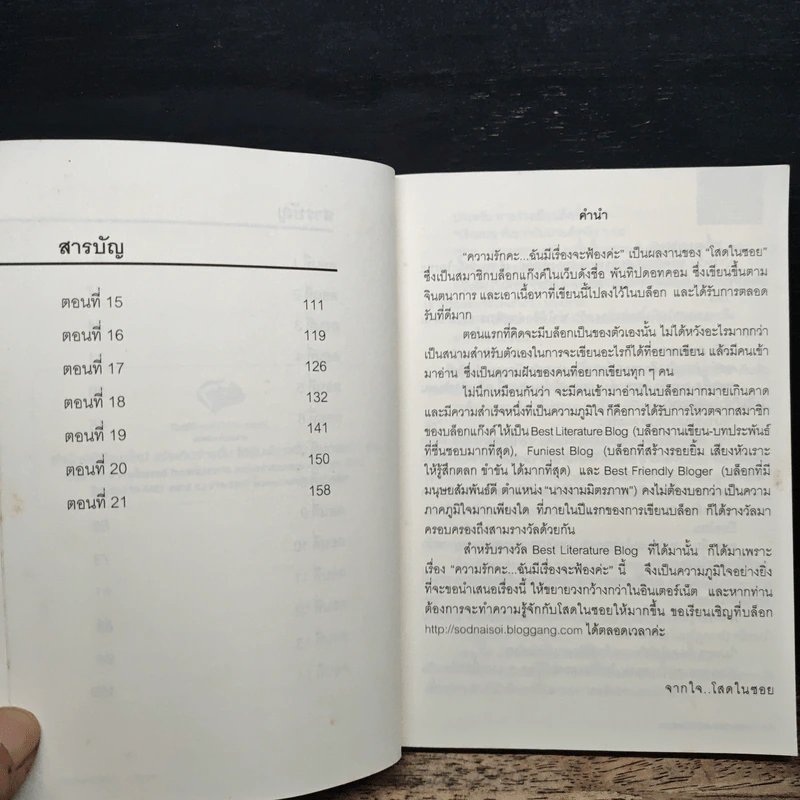 สารบัญ
ตอนที่ 15 111
ตอนที่ 16 119
ตอนที่ 17 126
ตอนที่ 18 132
ตอนที่ 19 141
ตอนที่ 20 150
ตอนที่ 21 158
คำนำ
“ความรักคะ...ฉันมีเรื่องจะฟ้องค่ะ” เป็นผลงานของ “โสดในซอย”
ซึ่งเป็นสมาชิกบล็อกแก๊งค์ในเว็บดังชื่อ พันทิปดอทคอม ซึ่งเขียนขึ้นตาม
จินตนาการ และเอาเนื้อหาที่เขียนนี้ไปลงไว้ในบล็อก และได้รับการตลอด
รับที่ดีมาก
ตอนแรกที่คิดจะมีบล็อกเป็นของตัวเองนั้น ไม่ได้หวังอะไรมากกว่า
เป็นสนามสำหรับตัวเองในการจะเขียนอะไรก็ได้ที่อยากเขียน แล้วมีคนเข้า
มาอ่าน ซึ่งเป็นความฝันของคนที่อยากเขียนทุก ๆ คน
ไม่นึกเหมือนกันว่า จะมีคนเข้ามาอ่านในบล็อกมากมายเกินคาด
และมีความสำเร็จหนึ่งที่เป็นความภูมิใจ ก็คือการได้รับการโหวตจากสมาชิก
ของบล็อกแก๊งค์ให้เป็น Best Literature Blog (บล็อกงานเขียน-บทประพันธ์
ที่ชื่นชอบมากที่สุด), Funiest Blog (บล็อกที่สร้างรอยยิ้ม เสียงหัวเราะ
ให้รู้สึกตลก ขำขัน ได้มากที่สุด) และ Best Friendly Bloger (บล็อกที่มี
มนุษยสัมพันธ์ดี ตำแหน่ง “นางงามมิตรภาพ”) คงไม่ต้องบอกว่า เป็นความ
ภาคภูมิใจมากเพียงใด ที่ภายในปีแรกของการเขียนบล็อก ก็ได้รางวัลมา
ครอบครองถึงสามรางวัลด้วยกัน
สำหรับรางวัล Best Literature Blog ที่ได้มานั้น ก็ได้มาเพราะ
เรื่อง “ความรักคะ...ฉันมีเรื่องจะฟ้องค่ะ” นี้ จึงเป็นความภูมิใจอย่างยิ่ง
ที่จะขอนำเสนอเรื่องนี้ ให้ขยายวงกว้างกว่าในอินเตอร์เน็ต และหากท่าน
ต้องการจะทำความรู้จักกับโสดในซอยให้มากขึ้น ขอเรียนเชิญที่บล็อก
http://sodnaisoi.bloggang.com ได้ตลอดเวลาค่ะ
จากใจ..โสดในซอย